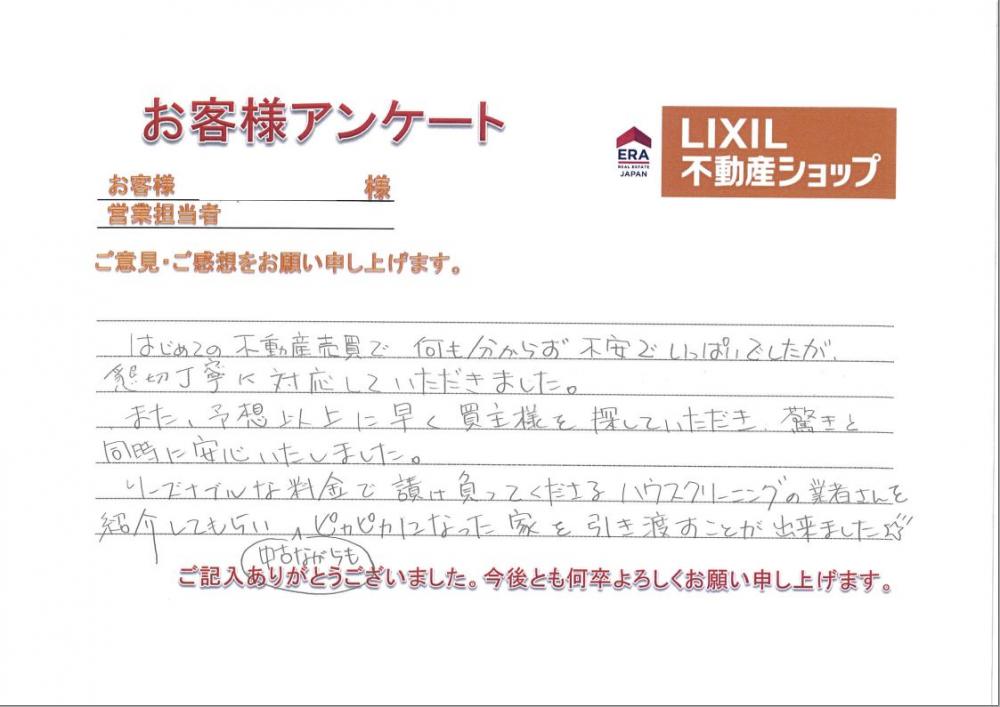 お客様アンケート
ERA
REAL ESTATE
JAPAN
LIXIL
不動産ショップ
お客様 様
営業担当者
ご意見・ご感想をお願い申し上げます。
はじめての不動産売買で 何も分からず 不安でいっぱいでしたが、
懇切丁寧に対応していただきました。
また、予想以上に早く買主様を探していただき、驚きと
同時に安心いたしました。
リーズナブルな料金で請け負ってくださるハウスクリーニングの業者さんを
紹介してもらい ピカピカになった家を引き渡すことが出来ました☆
中古ながらも
ご記入ありがとうございました。今後とも何卒よろしくお願い申し上げます。